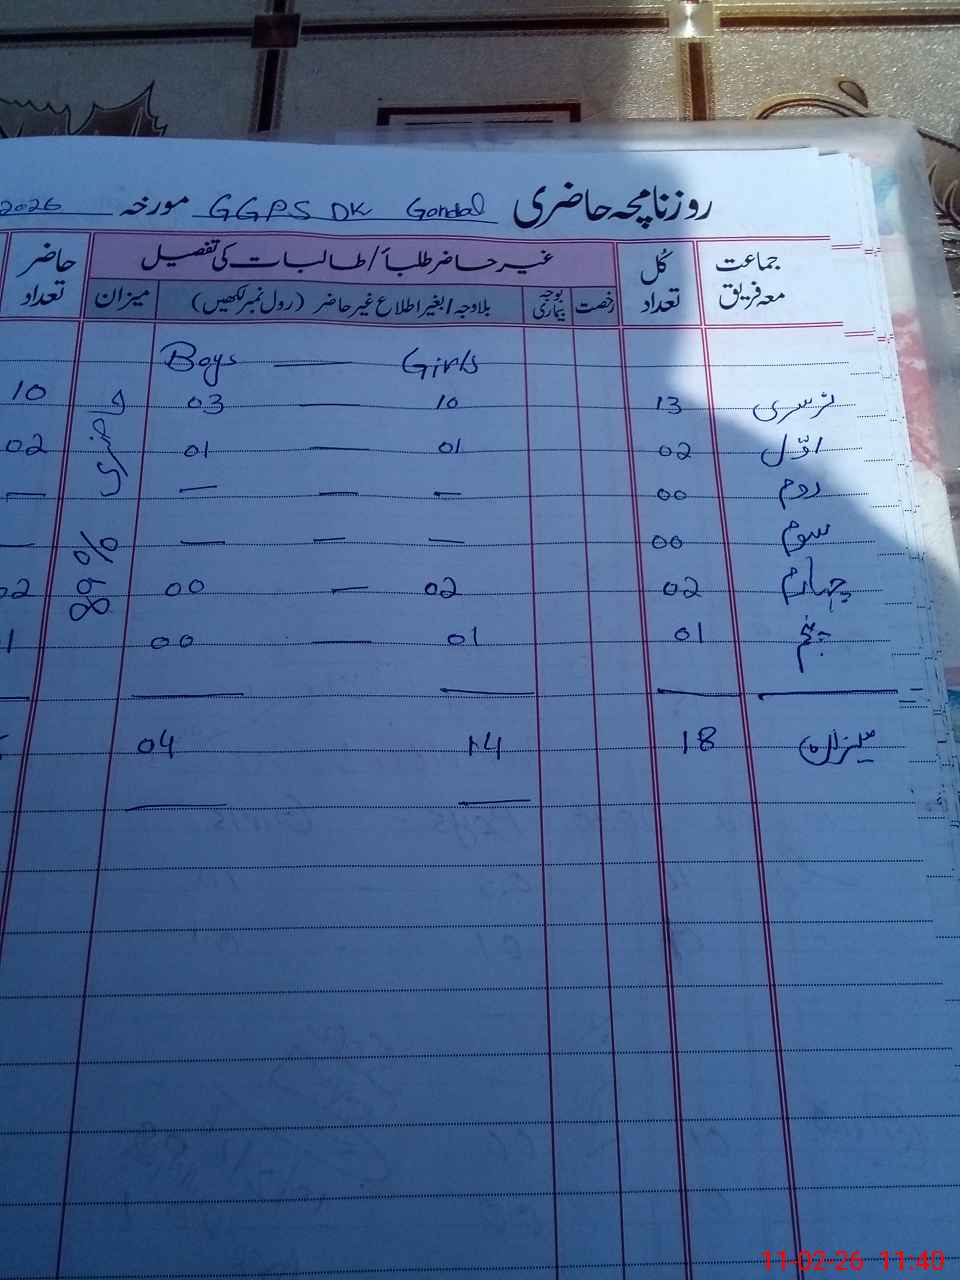 روزنامچہ حاضری GGPS DK Gondal مورخہ 2026
جماعت معہ فریق کُل تعداد غیر حاضر طلبأ/طالبات کی تفصیل حاضر تعداد
رخصت بوجہ بیماری بلاوجہ/بغیر اطلاع غیر حاضر (رول نمبر لکھیں) میزان
Boys — Girls
نرسری 13 10 — 03 10
اوّل 02 01 — 01 02
دوم 00 — — — —
سوم 00 — — — —
چہارم 02 02 — 00 02
پنجم 01 01 — 00
میزان 18 14 04
حاضری 89%
11-02-26 11:40